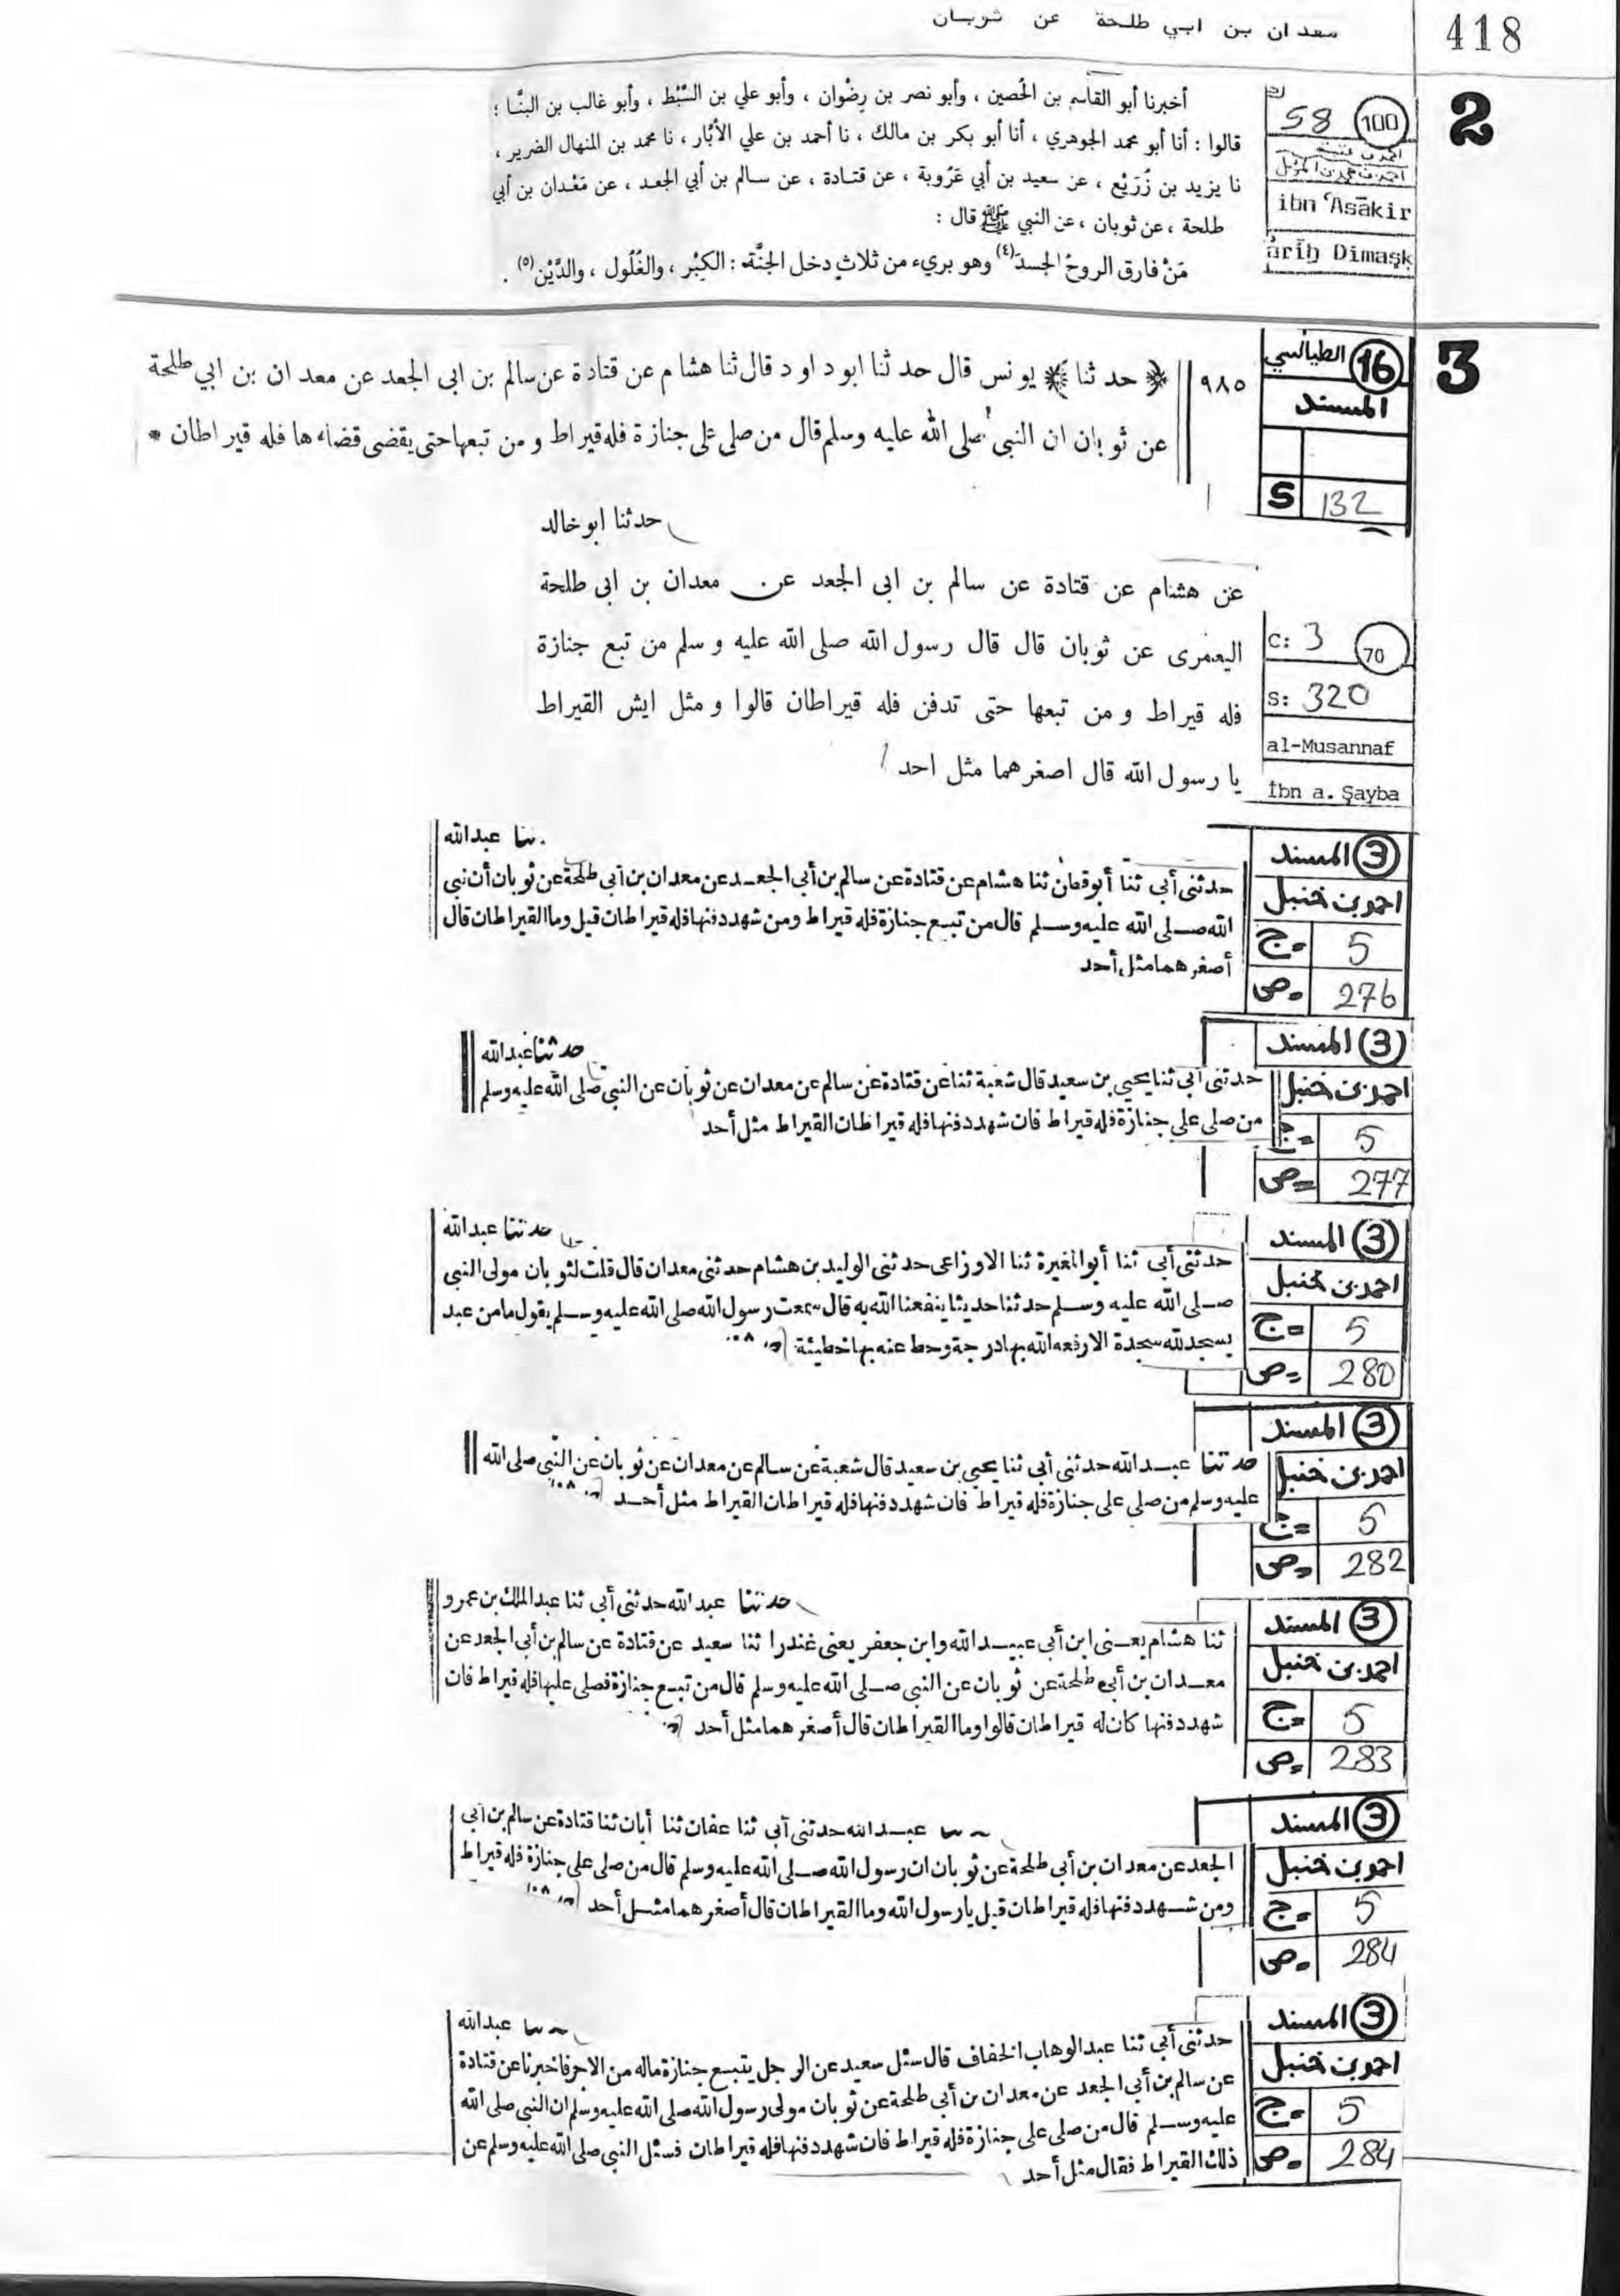 معدان بن ابي طلحة عن ثوبان
418
2
58 100
ibn ʿAsākir
āriḫ Dimaşḳ
أخبرنا أبو القاسم بن الحُصين ، وأبو نصر بن رِضْوان ، وأبو علي بن السِّبْط ، وأبو غالب بن البنَّا ؛
قالوا : أنا أبو محمد الجوهري ، أنا أبو بكر بن مالك ، نا أحمد بن علي الأبّار ، نا محمد بن المنهال الضرير ،
نا يزيد بن زُرَيْع ، عن سعيد بن أبي عَرُوبة ، عن قتادة ، عن سالم بن أبي الجعد ، عن مَعْدان بن أبي
طلحة ، عن ثوبان ، عن النبي ﷺ قال :
مَنْ فارق الروحُ الجسدَ(٤) وهو بريء من ثلاثٍ دخل الجنَّة : الكِبْر ، والغُلُول ، والدَّيْن(٥) .
3
16 الطيالسي
المسند
S 132
٩٨٥
﴿ حدثنا ﴾ يونس قال حدثنا ابوداود قال ثنا هشام عن قتادة عن سالم بن ابى الجعد عن معدان بن ابي طلحة
عن ثوبان ان النبى صلى الله عليه وسلم قال من صلى على جنازة فله قيراط و من تبعها حتى يقضى قضاءها فله قيراطان *
حدثنا ابو خالد
عن هشام عن قتادة عن سالم بن ابى الجعد عن معدان بن ابى طلحة
اليعمرى عن ثوبان قال قال رسول الله صلى الله عليه و سلم من تبع جنازة
فله قيراط و من تبعها حتى تدفن فله قيراطان قالوا و مثل ايش القيراط
يا رسول الله قال اصغرهما مثل احد
C: 3 70
S: 320
al-Musannaf
İbn a. Şayba
3 المسند
احمد بن حنبل
ج= 5
ص= 276
ثنا عبدالله
حدثنى أبى ثنا أبو قطن ثنا هشام عن قتادة عن سالم بن أبى الجعد عن معدان بن أبى طلحة عن ثوبان أن نبى
الله صلى الله عليه وسلم قال من تبع جنازة فله قيراط ومن شهد دفنها فله قيراطان قيل وما القيراطان قال
أصغرهما مثل أحد
(3) المسند
احمد بن حنبل
ج= 5
ص= 277
حدثنا عبدالله
حدثنى أبى ثنا يحيى بن سعيد قال شعبة ثنا عن قتادة عن سالم عن معدان عن ثوبان عن النبى صلى الله عليه وسلم
من صلى على جنازة فله قيراط فان شهد دفنها فله قيراطان القيراط مثل أحد
3 المسند
احمد بن حنبل
ج= 5
ص= 280
حدثنا عبدالله
حدثنى أبى ثنا أبو المغيرة ثنا الاوزاعى حدثنى الوليد بن هشام حدثنى معدان قال قلت لثوبان مولى النبى
صلى الله عليه وسلم حدثنا حديثا ينفعنا الله به قال سمعت رسول الله صلى الله عليه وسلم يقول ما من عبد
يسجد لله سجدة الا رفعه الله بها درجة وحط عنه بها خطيئة
3 المسند
احمد بن حنبل
ج= 5
ص= 282
حدثنا عبد الله حدثنى أبى ثنا يحيى بن سعيد قال شعبة عن سالم عن معدان عن ثوبان عن النبى صلى الله
عليه وسلم من صلى على جنازة فله قيراط فان شهد دفنها فله قيراطان القيراط مثل أحد
3 المسند
احمد بن حنبل
ج= 5
ص= 283
حدثنا عبد الله حدثنى أبى ثنا عبد الملك بن عمرو
ثنا هشام يعنى ابن أبى عبيد الله وابن جعفر يعنى غندرا ثنا سعيد عن قتادة عن سالم بن أبى الجعد عن
معدان بن أبى طلحة عن ثوبان عن النبى صلى الله عليه وسلم قال من تبع جنازة فصلى عليها فله قيراط فان
شهد دفنها كان له قيراطان قالوا وما القيراطان قال أصغرهما مثل أحد
3 المسند
احمد بن حنبل
ج= 5
ص= 284
عبد الله حدثنى أبى ثنا عفان ثنا أبان ثنا قتادة عن سالم بن أبى
الجعد عن معدان بن أبى طلحة عن ثوبان ان رسول الله صلى الله عليه وسلم قال من صلى على جنازة فله قيراط
ومن شهد دفنها فله قيراطان قيل يا رسول الله وما القيراطان قال أصغرهما مثل أحد
3 المسند
احمد بن حنبل
ج= 5
ص= 284
عبدالله
حدثنى أبى ثنا عبد الوهاب الخفاف قال سئل سعيد عن الرجل يتبع جنازة ماله من الاجر فاخبرنا عن قتادة
عن سالم بن أبى الجعد عن معدان بن أبى طلحة عن ثوبان مولى رسول الله صلى الله عليه وسلم ان النبى صلى الله
عليه وسلم قال من صلى على جنازة فله قيراط فان شهد دفنها فله قيراطان فسئل النبى صلى الله عليه وسلم عن
ذلك القيراط فقال مثل أحد